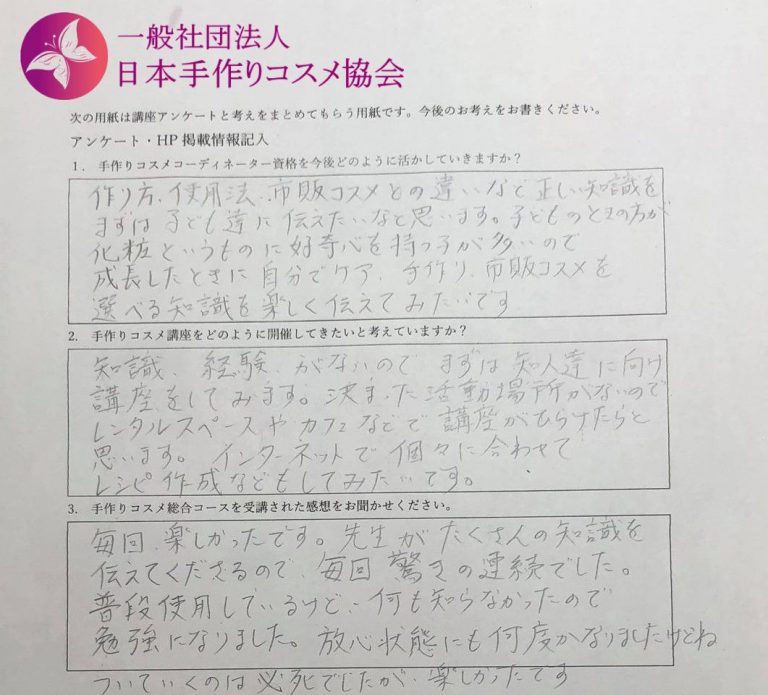 一般社団法人
日本手作りコスメ協会
次の用紙は講座アンケートと考えをまとめてもらう用紙です。今後のお考えをお書きください。
アンケート・HP 掲載情報記入
1. 手作りコスメコーディネーター資格を今後どのように活かしていきますか？
作り方、使用法、市販コスメとの違いなど正しい知識を
まずは子ども達に伝えたいなと思います。子どものときの方が
化粧というものに好奇心を持つ子が多いので
成長したときに自分でケア、手作り、市販コスメを
選べる知識を楽しく伝えてみたいです
2. 手作りコスメ講座をどのように開催してきたいと考えていますか？
知識、経験、がないので まずは知人達に向け
講座をしてみます。決まった活動場所がないので
レンタルスペースやカフェなどで講座がひらけたらと
思います。インターネットで個々に合わせて
レシピ作成などもしてみたいです。
3. 手作りコスメ総合コースを受講された感想をお聞かせください。
毎回、楽しかったです。先生がたくさんの知識を
伝えてくださるので、毎回驚きの連続でした。
普段使用しているけど、何も知らなかったので
勉強になりました。放心状態にも何度かなりましたけどね
ついていくのは必死でしたが、楽しかったです